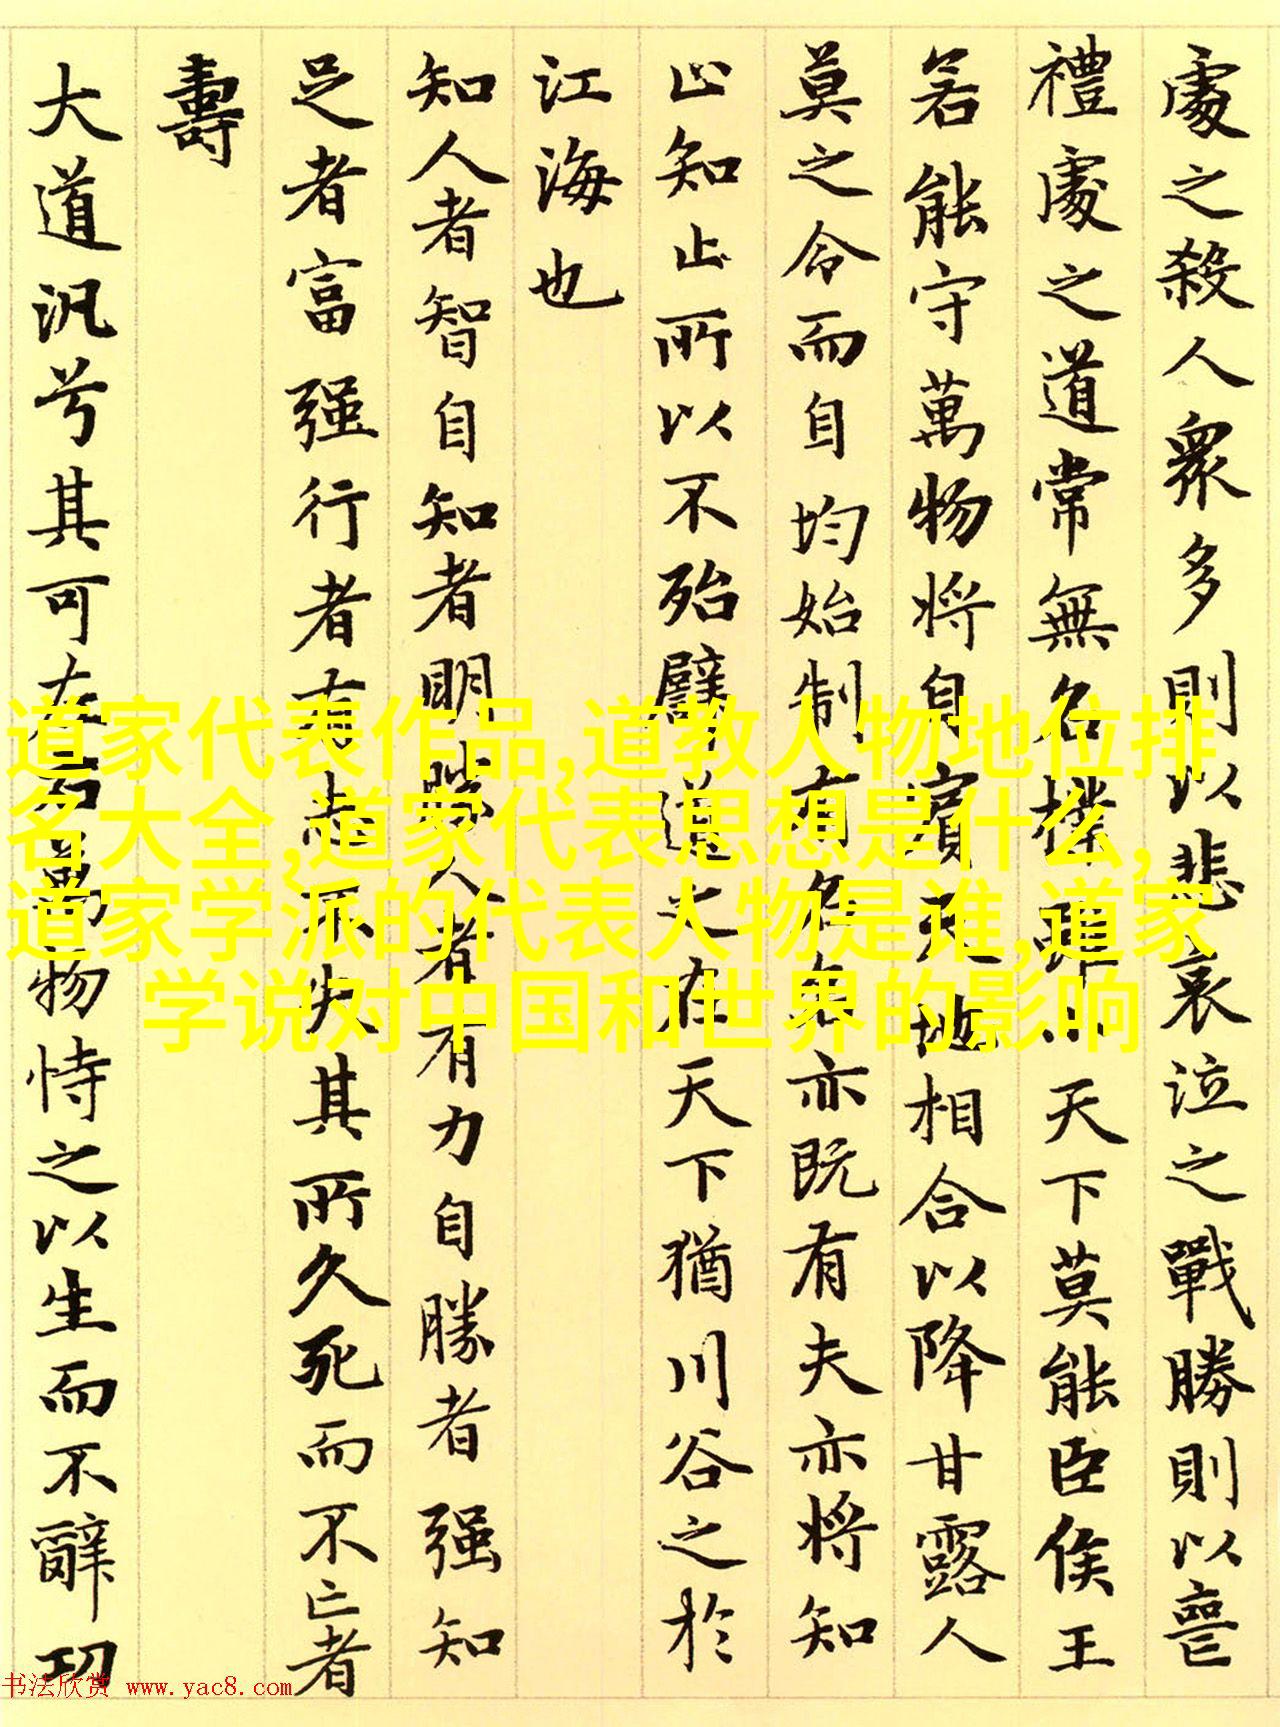 處之殺人眾多則以悲哀泣之戰勝則以喪
禮處之道常無名樸雖小天下莫能臣侯王
若能守萬物將自賓天地相合以降甘露人
莫之令而自均始制有名名亦既有夫亦將知
止知止所以不殆譬道之在天下猶川谷之於
江海也
知人者智自知者明勝人者有力自勝者强知
足者富强行者有志不失其所久死而不亡者
壽
大道汎兮其可左右萬物恃之以生而不辭功
道家代表作品,道教人物地位排
名大全,道家代表思想是什么,
道家学派的代表人物是谁,道家
学说对中国和世界的影响
书法欣赏 www.yac8.com